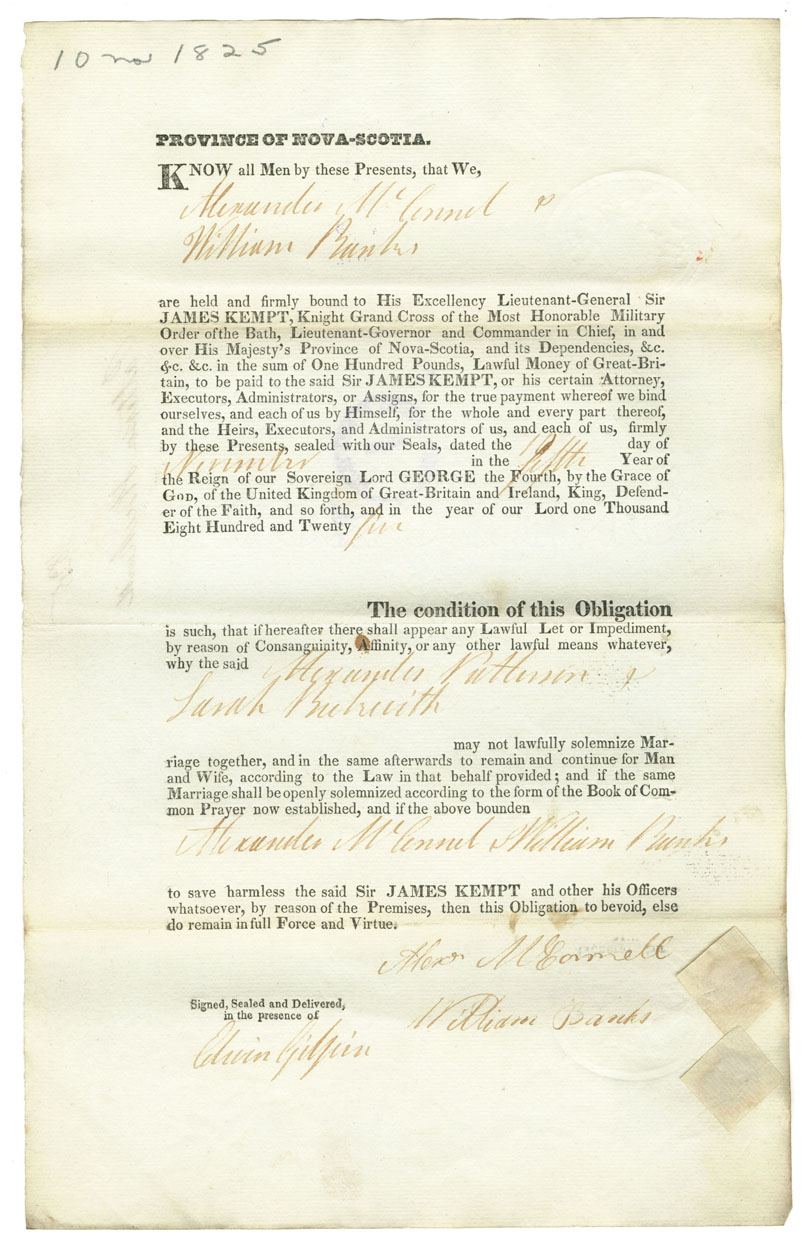 10 nov 1825
PROVINCE OF NOVA-SCOTIA.
KNOW all Men by these Presents, that We,
Alexander McConnel &
William Banks
are held and firmly bound to His Excellency Lieutenant-General Sir
JAMES KEMPT, Knight Grand Cross of the Most Honorable Military
Order of the Bath, Lieutenant-Governor and Commander in Chief, in and
over His Majesty's Province of Nova-Scotia, and its Dependencies, &c.
&c. &c. in the sum of One Hundred Pounds, Lawful Money of Great-Bri-
tain, to be paid to the said Sir JAMES KEMPT, or his certain Attorney,
Executors, Administrators, or Assigns, for the true payment whereof we bind
ourselves, and each of us by Himself, for the whole and every part thereof,
and the Heirs, Executors, and Administrators of us, and each of us, firmly
by these Presents, sealed with our Seals, dated the day of
November in the Year of
the Reign of our Sovereign Lord GEORGE the Fourth, by the Grace of
GOD, of the United Kingdom of Great-Britain and Ireland, King, Defend-
er of the Faith, and so forth, and in the year of our Lord one Thousand
Eight Hundred and Twenty five
The condition of this Obligation
is such, that if hereafter there shall appear any Lawful Let or Impediment,
by reason of Consanguinity, Affinity, or any other lawful means whatever,
why the said Alexander Patterson &
Sarah Beckwith
may not lawfully solemnize Mar-
riage together, and in the same afterwards to remain and continue for Man
and Wife, according to the Law in that behalf provided; and if the same
Marriage shall be openly solemnized according to the form of the Book of Com-
mon Prayer now established, and if the above bounden
Alexander McConnel & William Banks
to save harmless the said Sir JAMES KEMPT and other his Officers
whatsoever, by reason of the Premises, then this Obligation to be void, else
do remain in full Force and Virtue.
Alexr McConnell
Signed, Sealed and Delivered,
in the presence of
William Banks
Edwin Gilpin